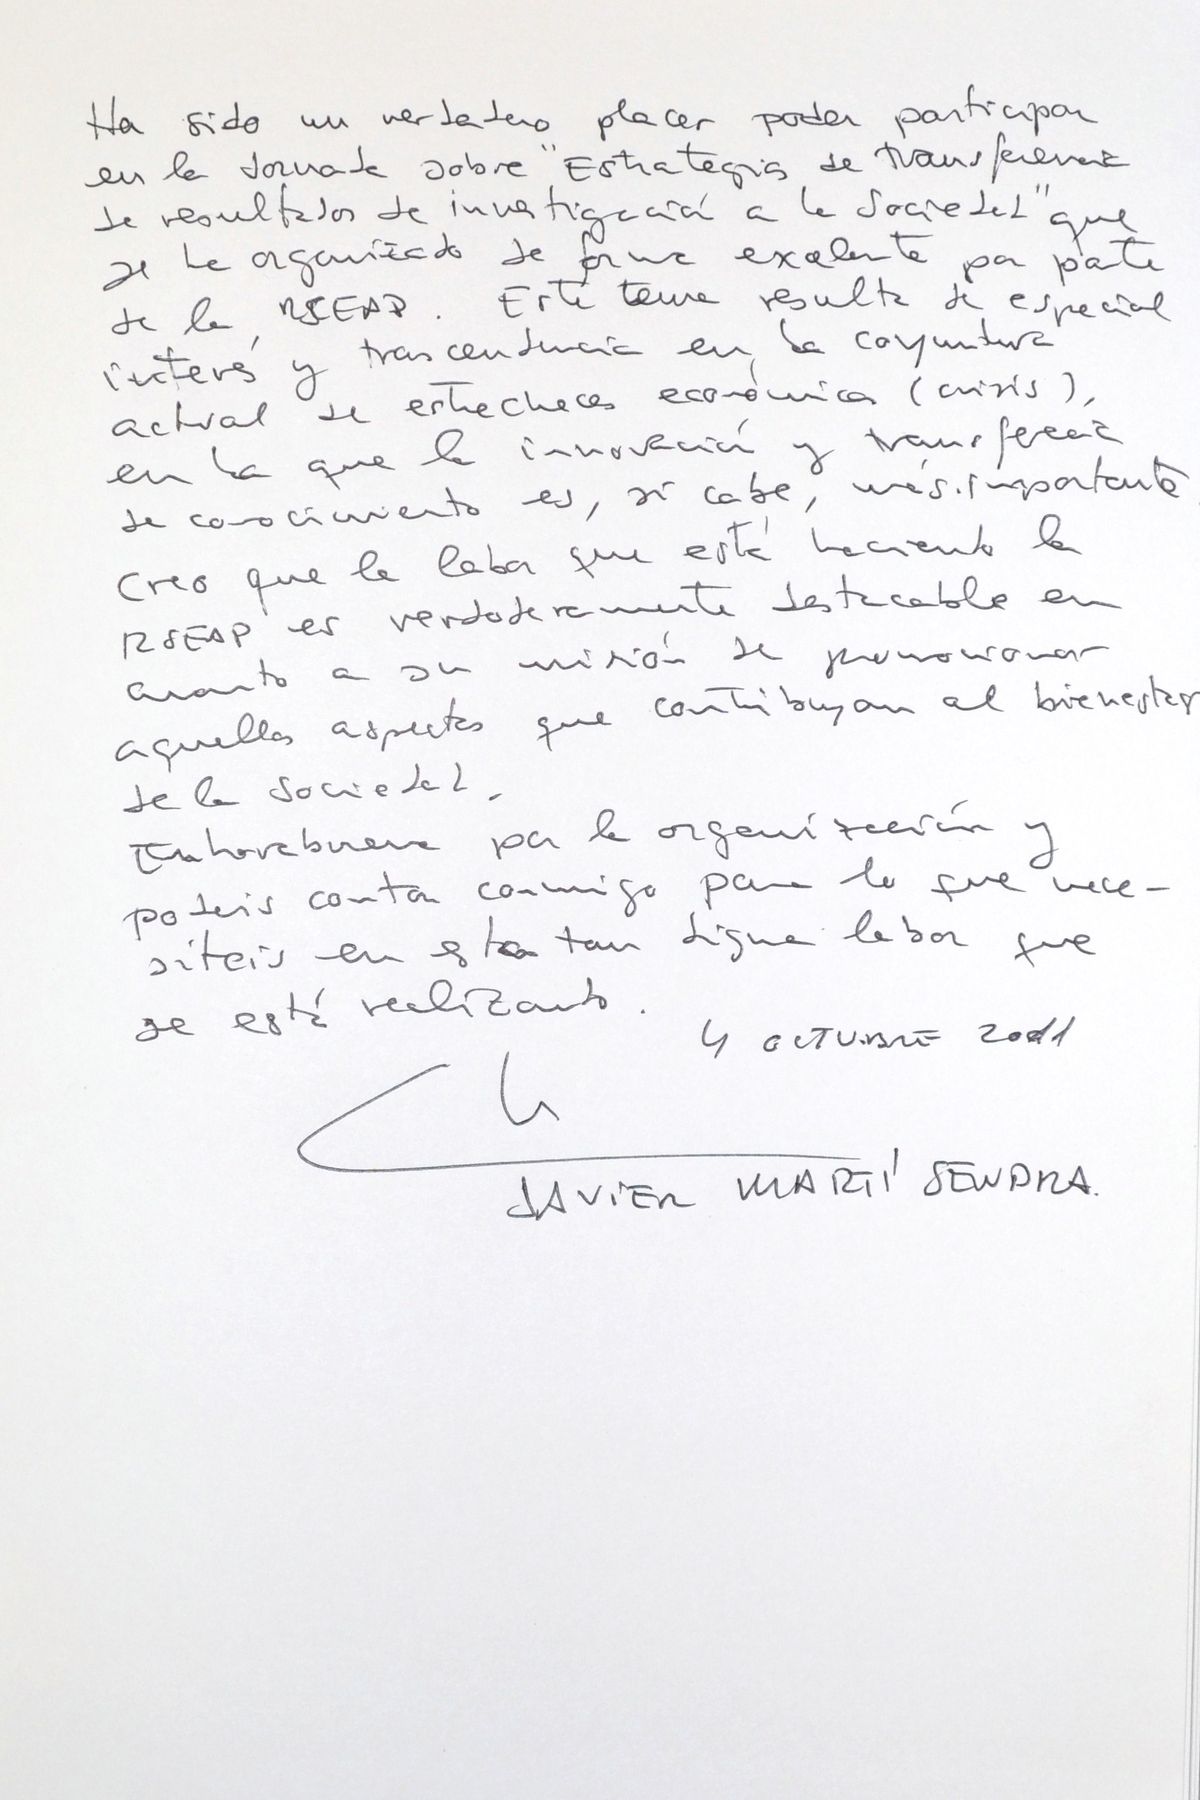 Ha sido un verdadero placer poder participar
en la Jornada sobre "Estrategias de transferencia
de resultados de investigación a la Sociedad" que
se ha organizado de forma excelente por parte
de la RSEAP. Este tema resulta de especial
interés y trascendencia en la coyuntura
actual de estrecheces económica (crisis),
en la que la innovación y transferencia
de conocimiento es, si cabe, más importante
Creo que la labor que está haciendo la
RSEAP es verdaderamente destacable en
cuanto a su misión de promocionar
aquellos aspectos que contribuyan al bienestar
de la Sociedad.
Enhorabuena por la organización y
podeis contar conmigo para lo que nece-
siteis en esta tan digna labor que
se está realizando.
4 OCTUBRE 2011
JAVIER MARTÍ SENDRA.